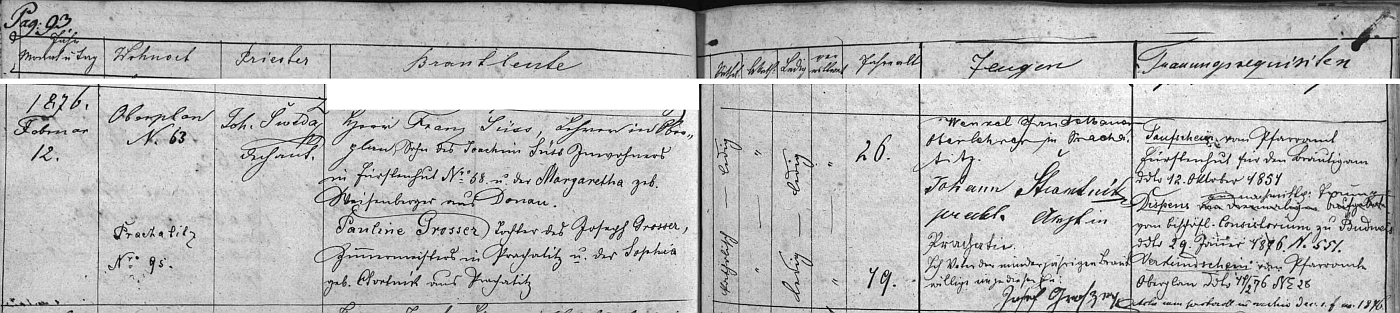 Pag. 93
Jahr
Monat u Tag
Wohnort
Priester
Brautleute
Kathol.
Ledig
Jahr alt
Zeugen
Trauungsrequisiten
1876.
Februar
12.
Oberplan
N. 63
Joh. Sweda
Dechant.
Herr Franz Süss, Lehrer in Ober-
plan, Sohn des Joachim Süss Inwohners
in Fürstenhut Nro 68 u. der Margaretha geb.
Weisenberger aus Donau.
Prachatitz
Nro 95.
Pauline Grosser, Tochter des Joseph Grosser,
Zimmermeisters in Prachatitz u. der Sophia
geb. aus Prachatitz
katholisch — ledig
ledig — ledig
26.
19.
Wenzel
Oberlehrer in Pracha-
titz.
Johann
prakt. Arzt in
Prachatic.
Ich Vater der minderjährigen Braut
willige in diese Ehe ein:
Josef Grosser
Taufschein vom Pfarramt
Fürstenhut für den Bräutigam
ddto 12. Oktober 1851
Dispens
vom bischöfl. Consistorium zu Budweis
ddto 29. Jänner 1876 N. 551.
Verkündschein vom Pfarramte
Oberplan ddto 11/2 76 N. 28